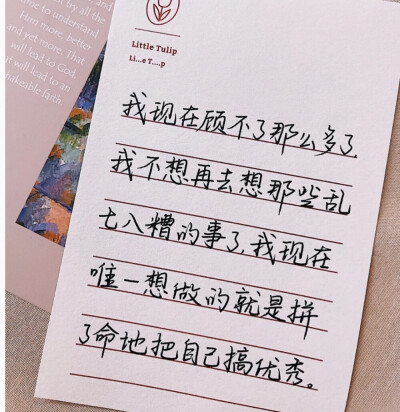 try all the
me to understand
Him more, better
and yet more. That
will lead to God,
t will lead to an
hakeable faith
Little Tulip
Li...e T....p
我现在顾不了那么多了
我不想再去想那些乱
七八糟的事了,我现在
唯一想做的就是拼
了命地把自己搞优秀。